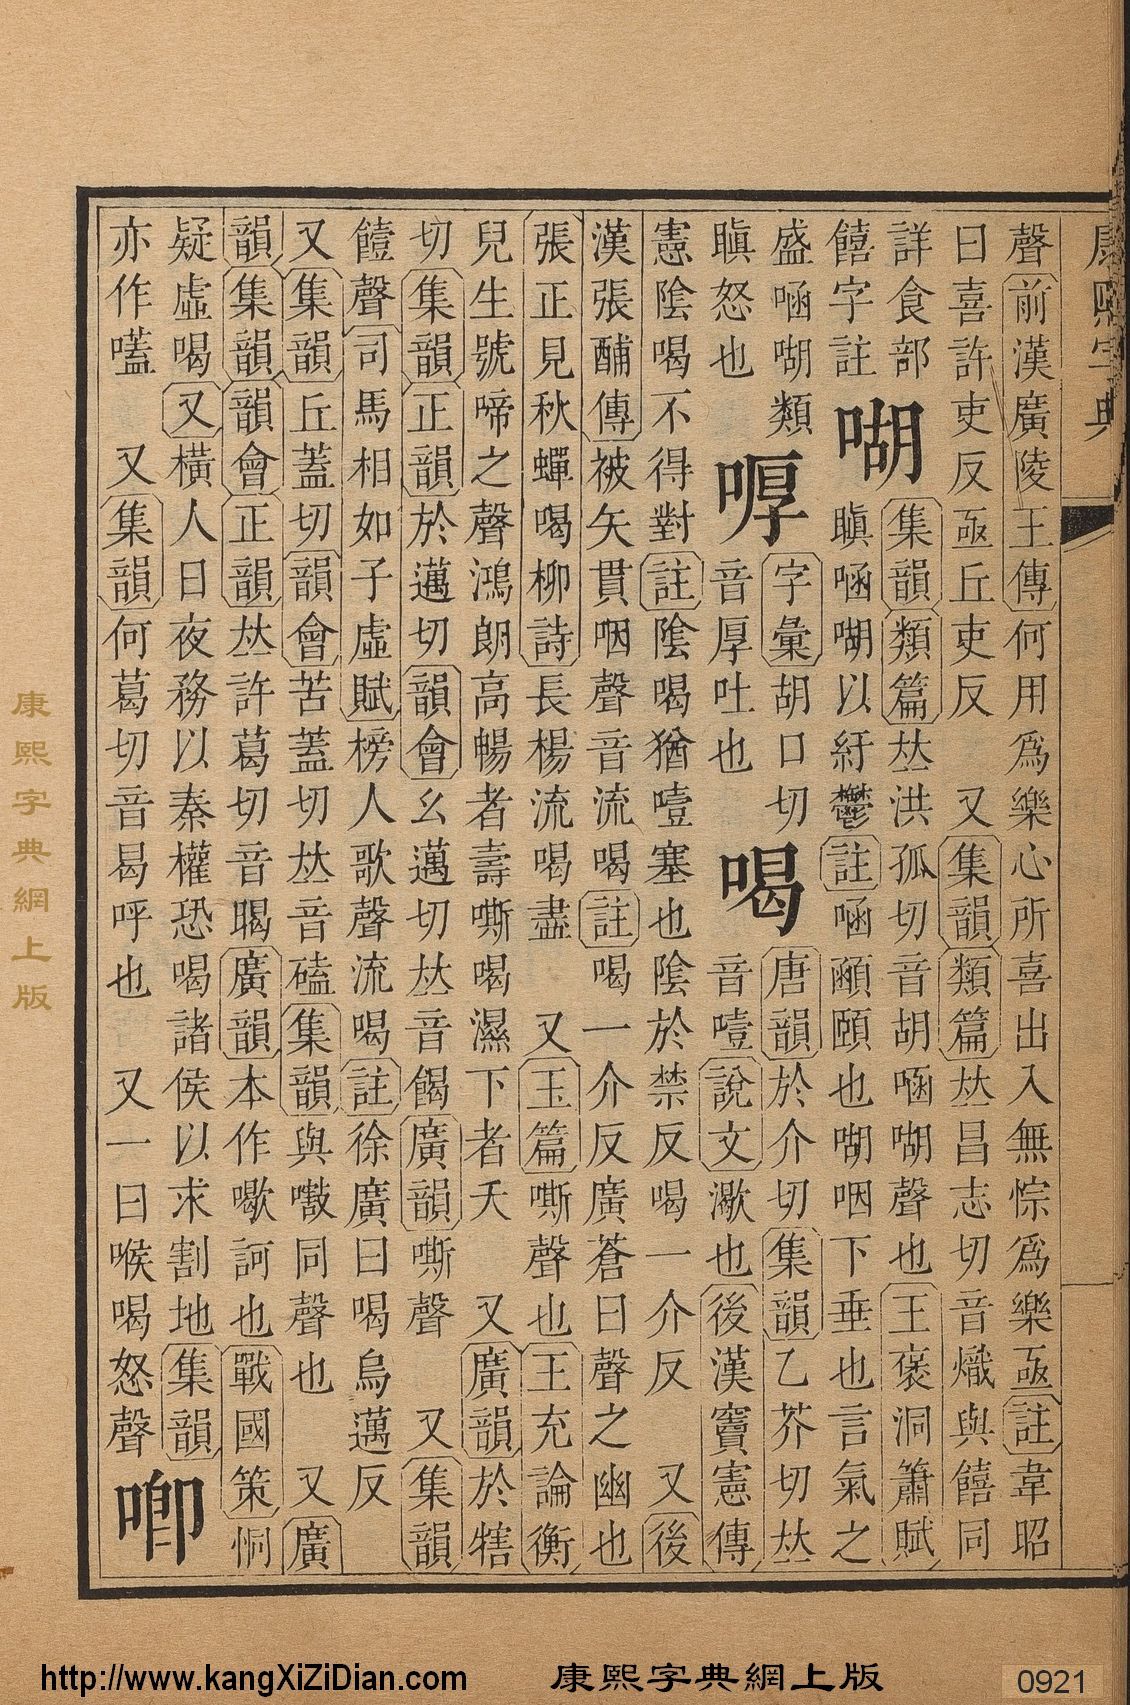 康熙字典
聲前漢廣陵王傳何用爲樂心所喜出入無悰爲樂亟註韋昭
曰喜許吏反亟丘吏反 又集韻類篇𠀤昌志切音熾與饎同
詳食部 集韻類篇𠀤洪孤切音胡㖤喖聲也王褒洞簫賦
饎字註 喖 瞋㖤喖以紆鬱註㖤顄頤也喖咽下垂也言氣之
盛㖤喖類 字彙胡口切 唐韻於介切集韻乙芥切𠀤
瞋怒也 㖃 音厚吐也 喝 音噎說文㵣也後漢竇憲傳
憲陰喝不得對註陰喝猶噎塞也陰於禁反喝一介反 又後
漢張酺傳被矢貫咽聲音流喝註喝一介反廣蒼曰聲之幽也
張正見秋蟬喝柳詩長楊流喝盡 又玉篇嘶聲也王充論衡
兒生號啼之聲鴻朗高暢者壽嘶喝濕下者夭 又廣韻於犗
切集韻正韻於邁切韻會幺邁切𠀤音餲廣韻嘶聲 又集韻
饐聲司馬相如子虛賦榜人歌聲流喝註徐廣曰喝烏邁反
又集韻丘蓋切韻會苦蓋切𠀤音磕集韻與㗶同聲也 又廣
韻集韻韻會正韻𠀤許葛切音暍廣韻本作㰤訶也戰國策恫
疑虛喝又橫人日夜務以秦權恐喝諸侯以求割地集韻
亦作嗑 又集韻何葛切音曷呼也 又一曰喉喝怒聲 喞
康熙字典網上版
http://www.kangXiZiDian.com 康熙字典網上版 0921